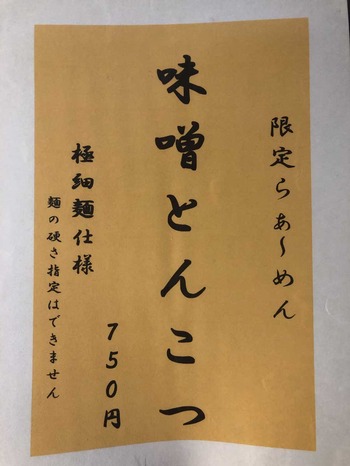 限定らぁ〜めん
味噌とんこつ
極細麺仕様
麺の硬さ指定はできません
750円